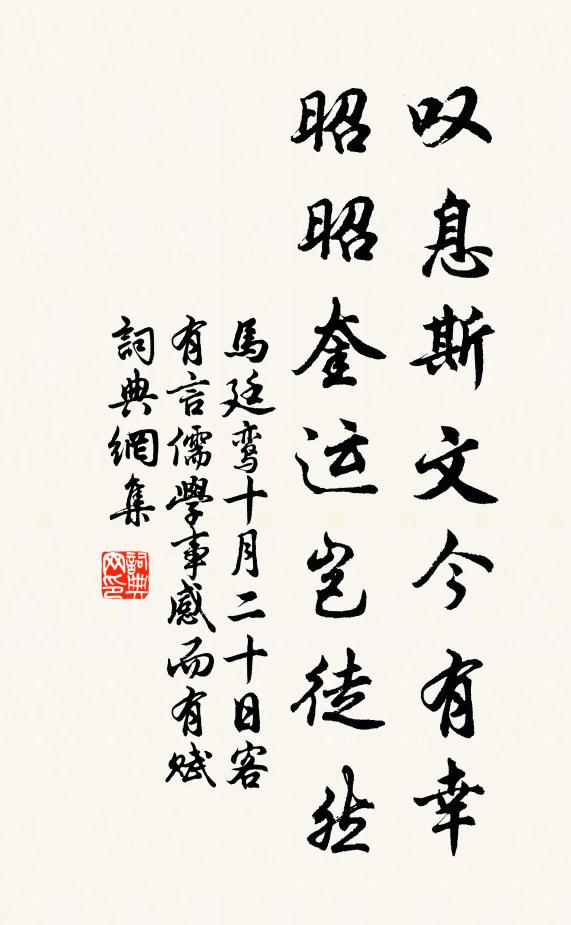 叹息斯文今有幸
昭昭奎运岂徒然
馬廷鸾十月二十日客
有言儒學事感而有赋
詞典網集
詞典
网印